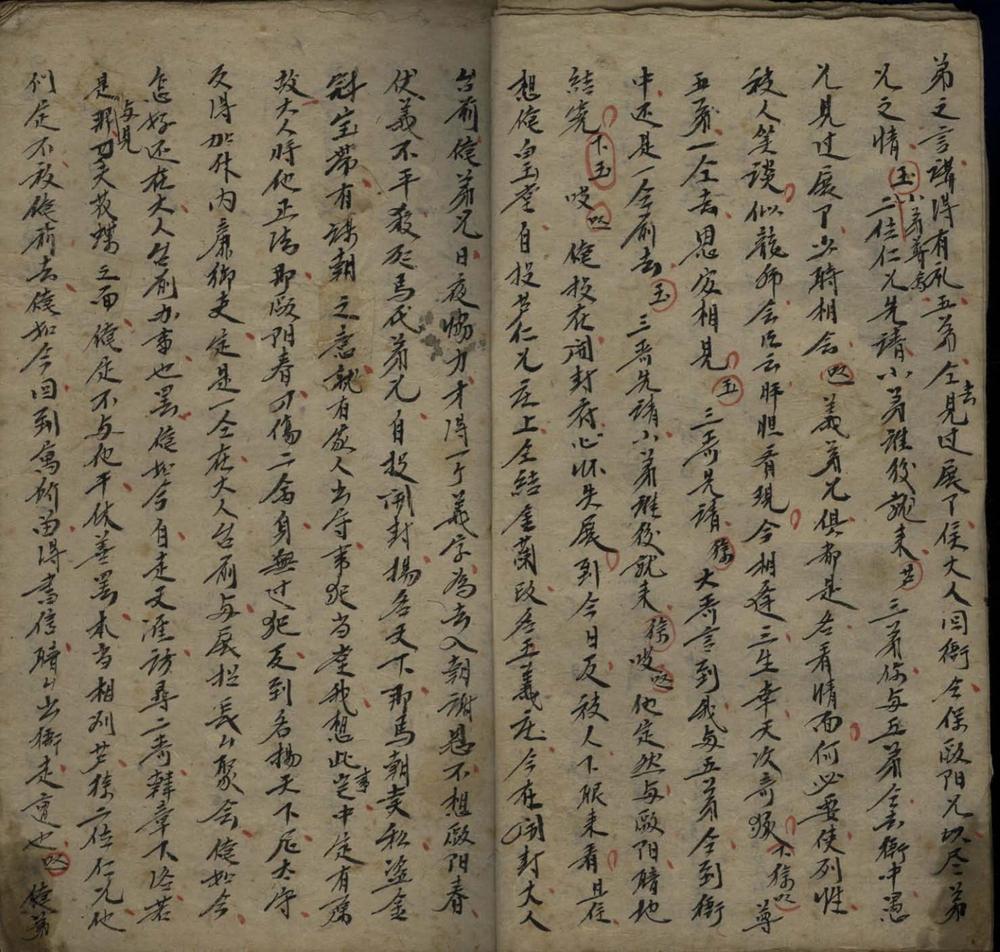 弟之言講得有礼五弟仝去見过展了侯大人回衙仝保歐阳兄以尽弟
兄之情玉小弟尊命二位仁兄先請小弟誰後就来芦三弟你与五弟仝去衙中愚
兄見过展了少時相会四義弟兄俱都是各看情面何必要使列性
被人笑談似龍师会臣云肝胆看現今相逢三生幸天次哥下徐以尊
五弟一仝去恩官相見玉三哥先請徐大哥言到我与五弟仝到衙
中还是一仝前去玉三哥先請小弟誰後就来徐吱四他定然与歐阳暗地
結完下玉吱四俺投在開封府心怀失展到今日反被人下眼来看且住
想俺白玉堂自投芦仁兄庄上仝結金蘭改名五義庄今在開封大人
台前俺弟兄日夜協力才得一个義字為去入朝謝恩不想歐阳春
伏義不平殺死馬代弟兄自投開封揚名天下那馬朝賢私盜金
冠宝帶有謀朝之意就有家人出首事犯当堂我想此事定中定有
故大人將他正法那歐阳春可傷二命身無过犯反到名揚天下尼太守
反得加升内廉御吏定是一仝在大人台前与展招兵山聚会俺如今
怎好还在大人台前办事也罢俺如今自走天涯訪尋二哥韓章下落若
是那与見丁夫教蝶之面俺定不与他干休善罢本当相別芦徐二位仁兄他
们定不放俺前去俺如今回到寓所留得書信暗山出衙走遭也四俺弟